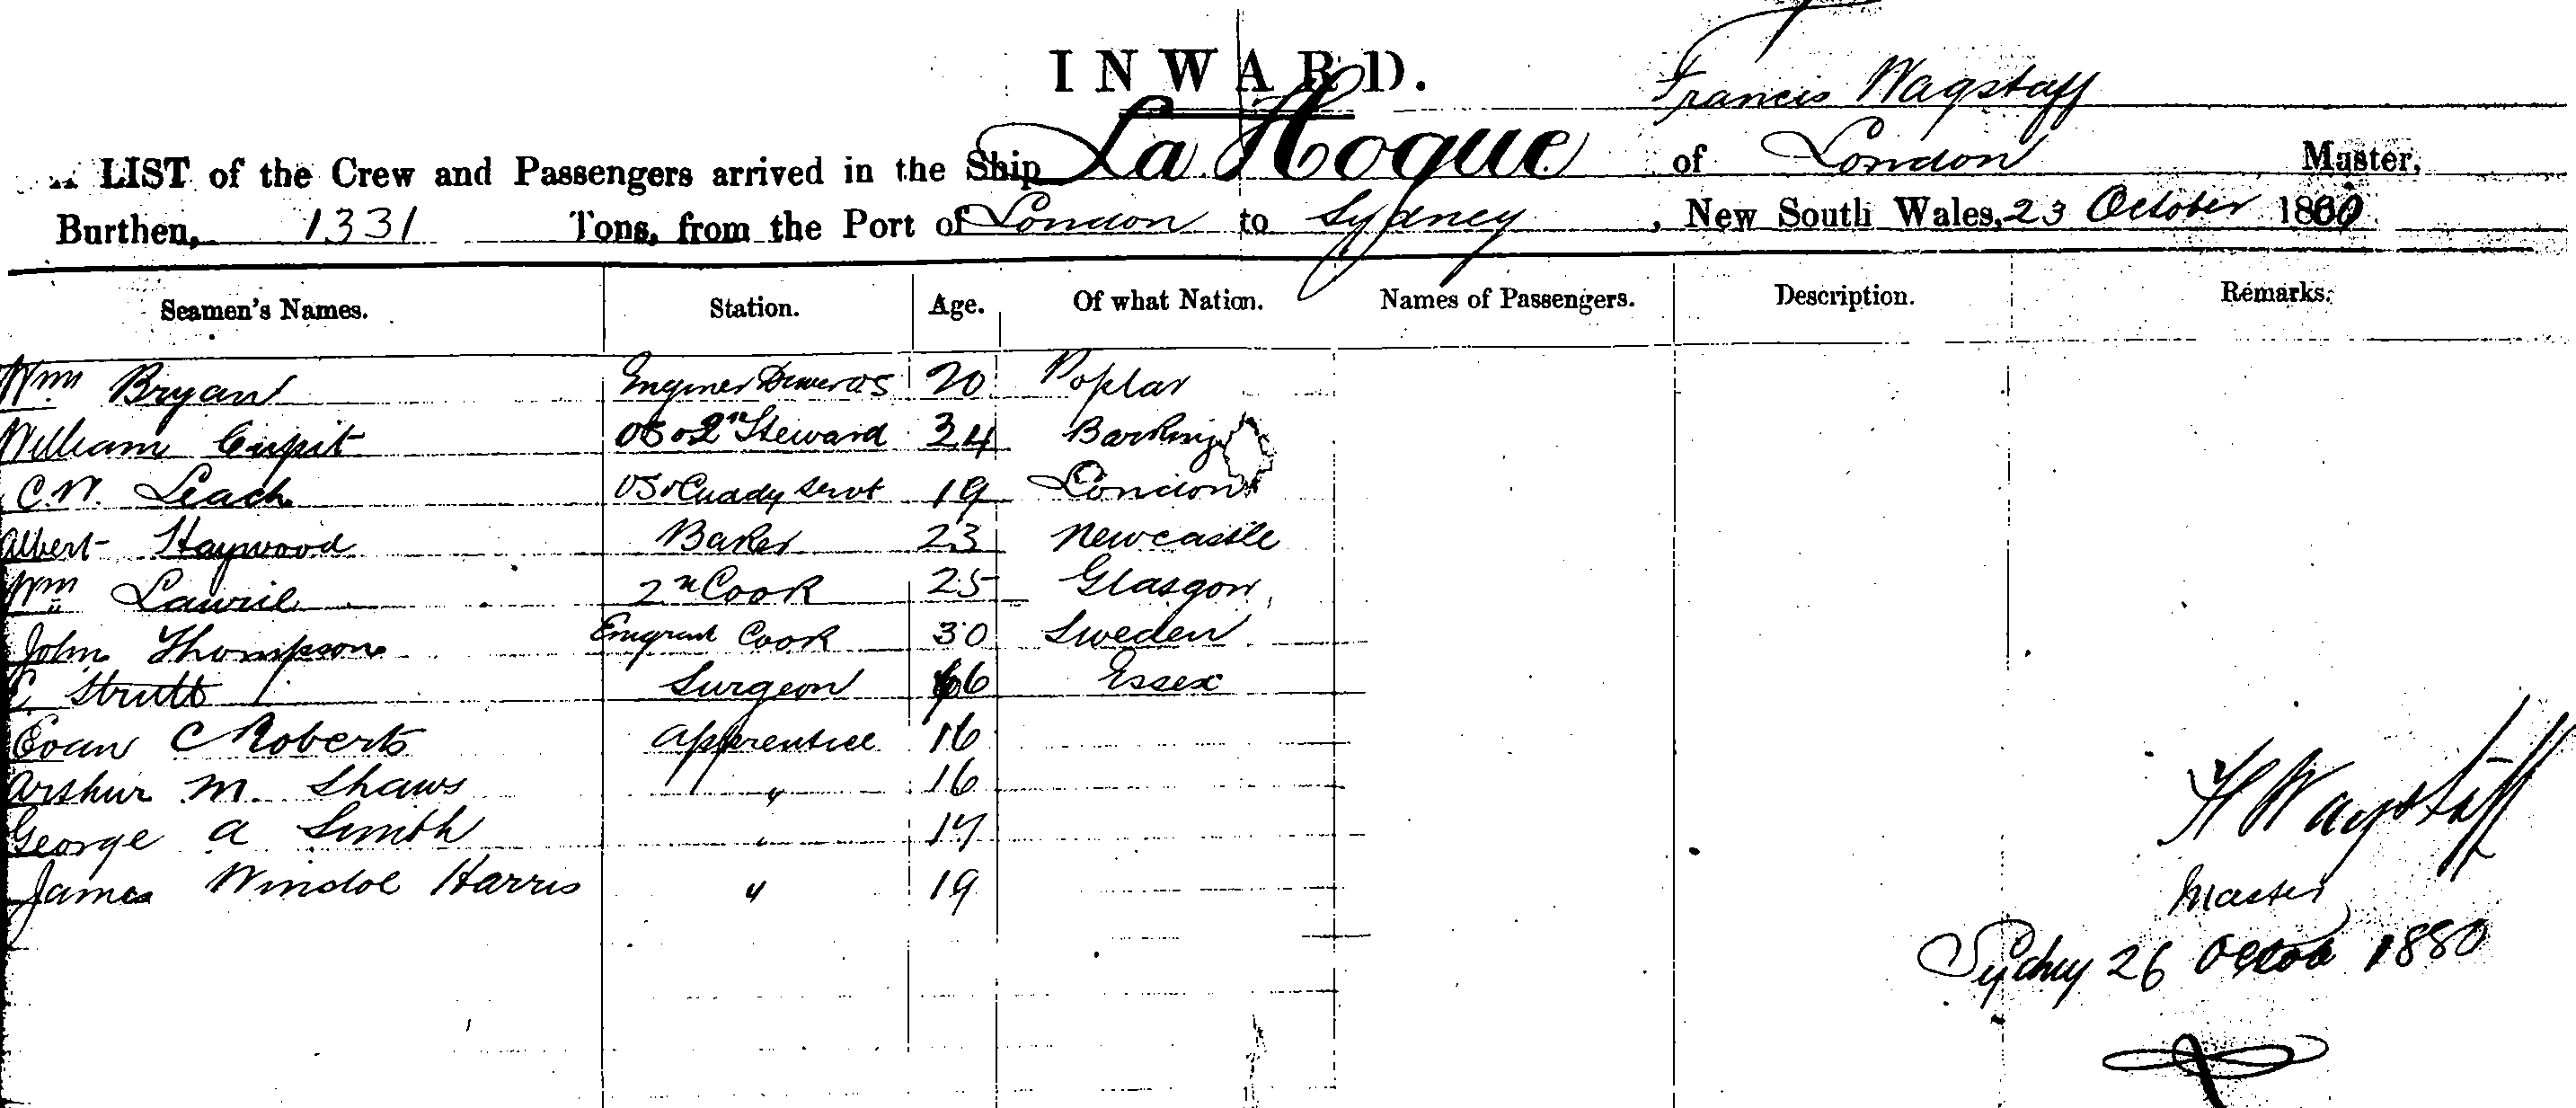 INWARD.
Francis Wagstaff
LIST of the Crew and Passengers arrived in the Ship La Hogue of London Master,
Burthen, 1331 Tons, from the Port of London to Sydney, New South Wales, 23 October 1880
Seamen's Names. Station. Age. Of what Nation. Names of Passengers. Description. Remarks.
Wm Bryan OS 20 Poplar
William Cupit OS & 2n Steward 34 Barking
C.W. Leach OS & Cuddy Servt 19 London
Albert Haywood Baker 23 Newcastle
Wm Lawrie 2n Cook 25 Glasgow
John Thompson Emigrant Cook 30 Sweden
C. Strutt Surgeon 66 Essex
Evan C Roberts Apprentice 16
Arthur M. Shaws " 16
George A Smith " 17
James Windol Harris " 19
F Wagstaff
Master
Sydney 26 Octob 1880